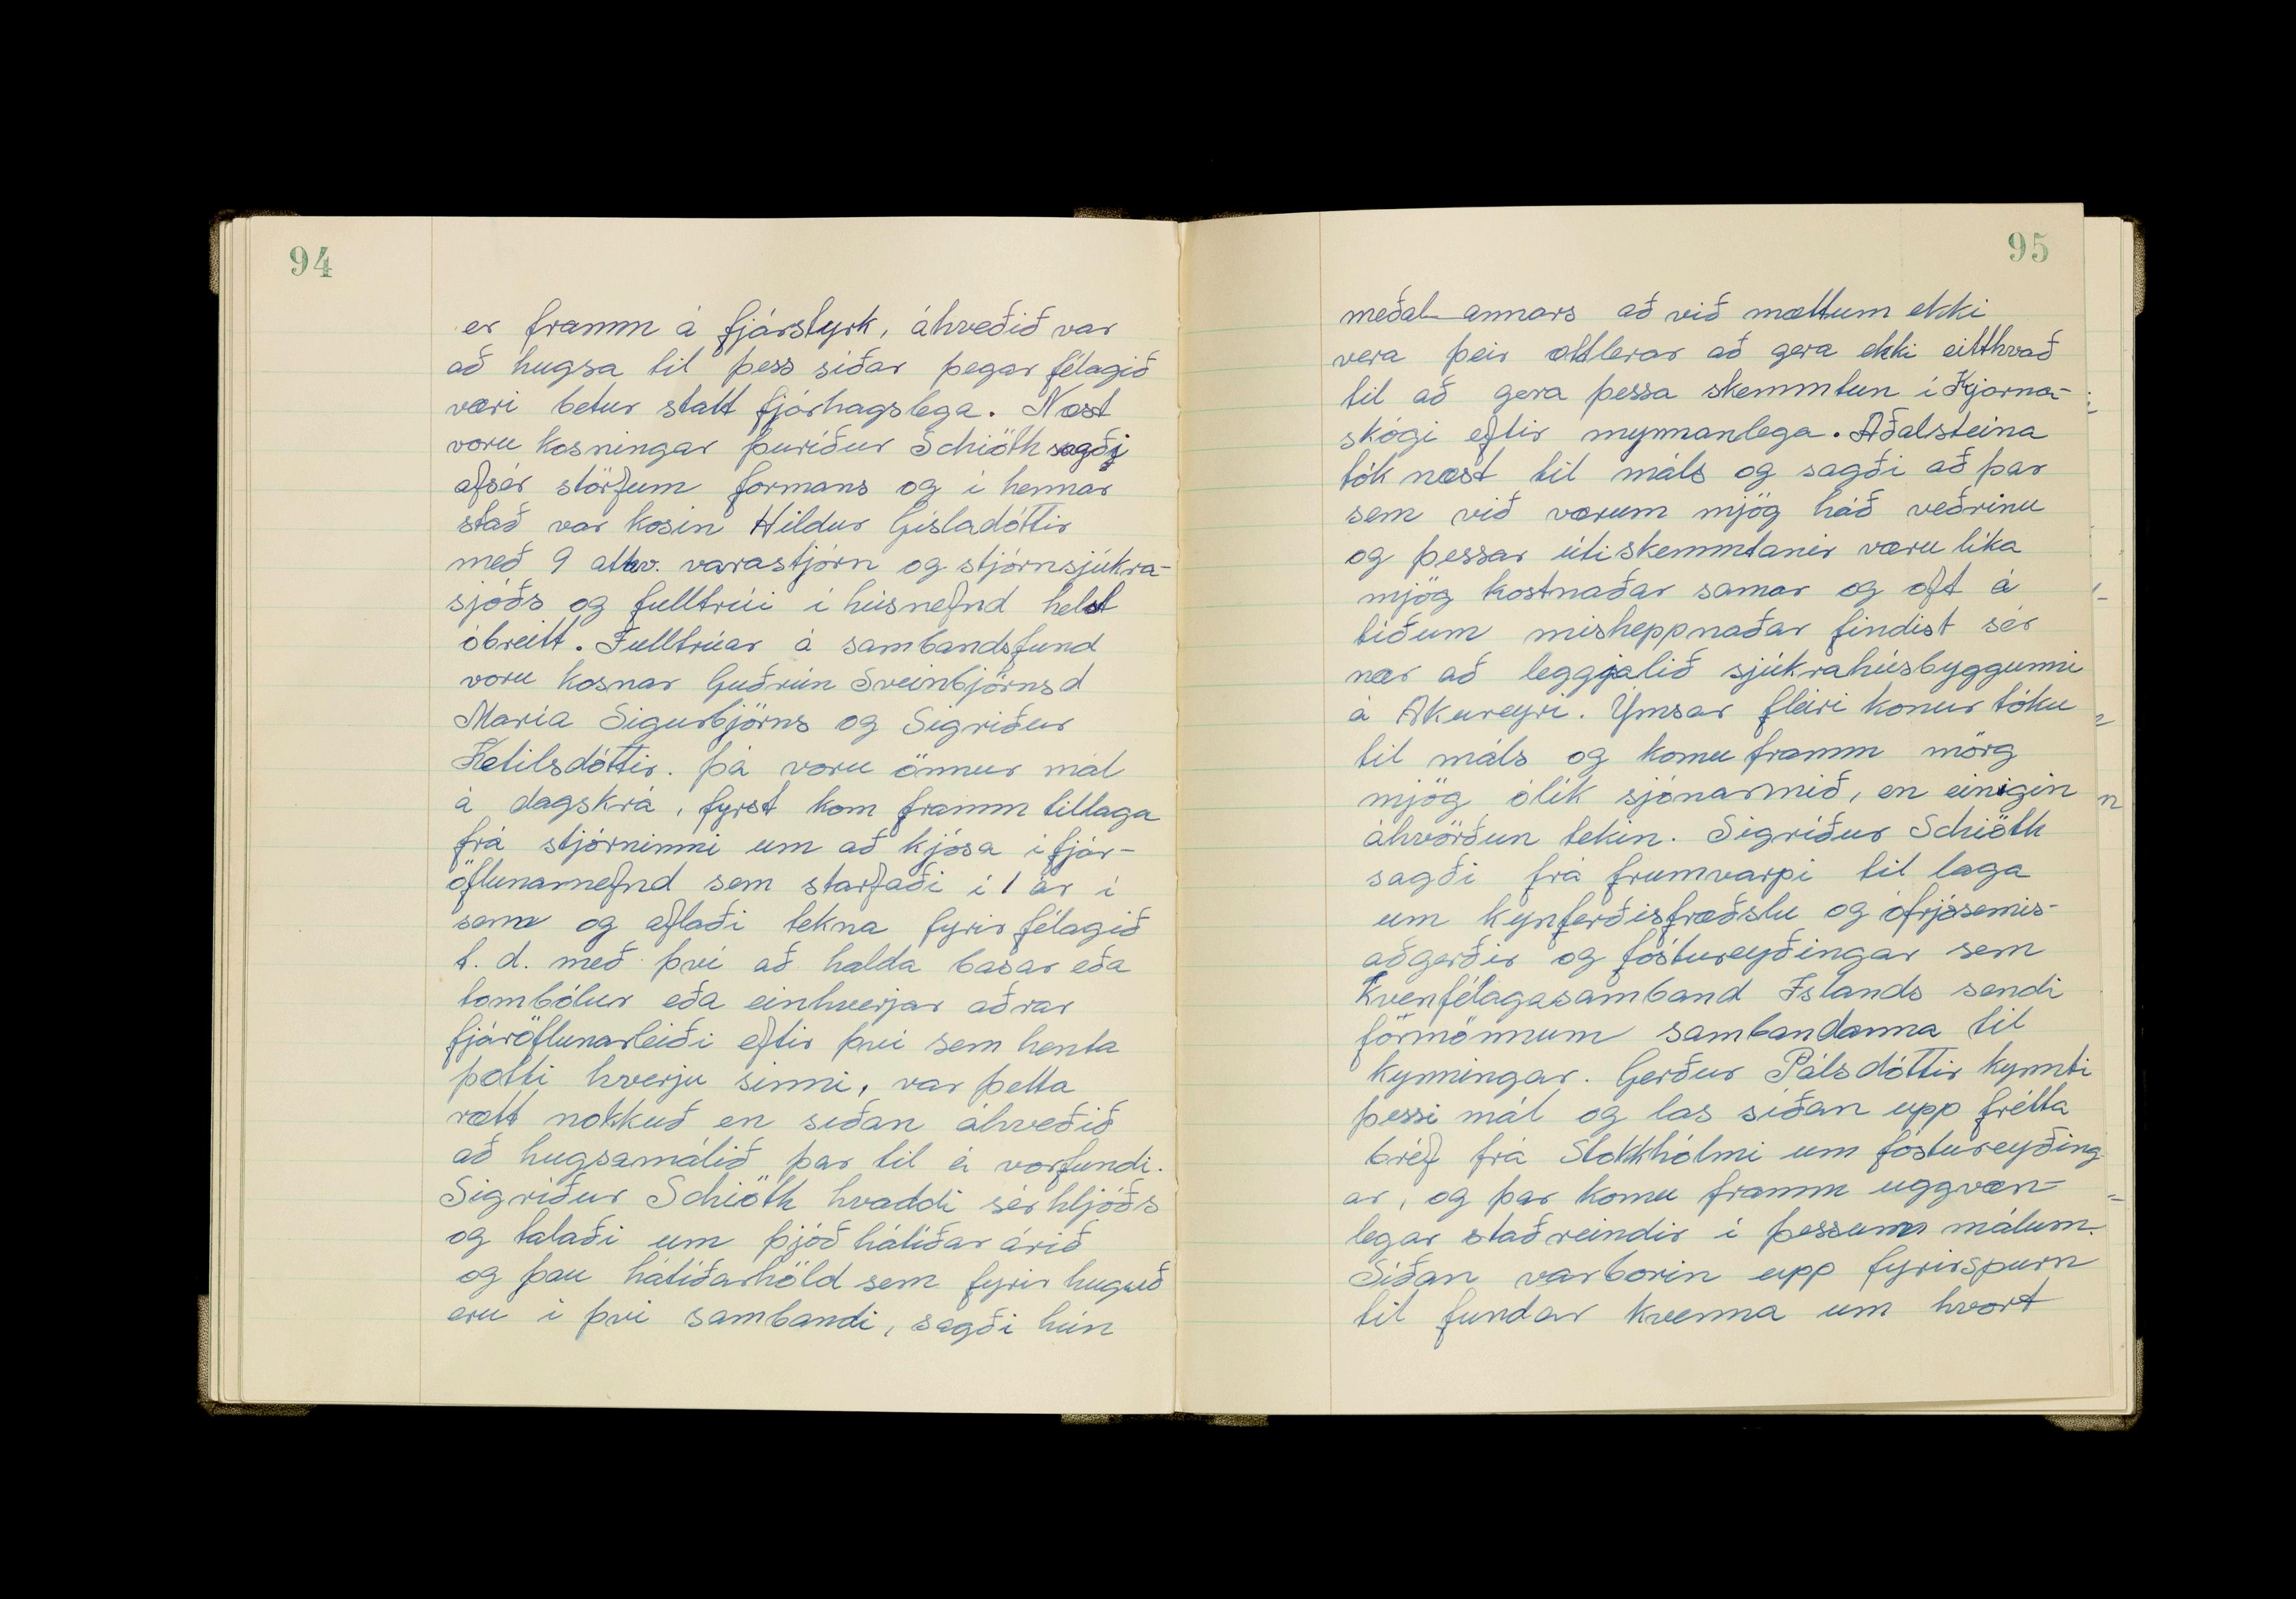 94
er framm á fjárstyrk, áhveðið var
að hugsa til þess síðar þegar félagið
væri betur statt fjárhagslega. Næst
voru kosningar Þuríður Schiöth sagði
afsér störfum formans og í hennar
stað var kosin Hildur Gísladóttir
með 9 atkv. varastjórn og stjórnsjúkra-
sjóðs og fulltrúi í húsnefnd helst
óbreitt. Fulltrúar á sambandsfund
voru kosnar Guðrún Sveinbjörnsd
María Sigurbjörns og Sigríður
Ketilsdóttir. Þá voru önnur mál
á dagskrá, fyrst kom framm tillaga
frá stjórninni um að kjósa í fjár-
öflunarnefnd sem starfaði í 1 ár í
senn og aflaði tekna fyrir félagið
t. d. með því að halda basar eða
tombólur eða einhverjar aðrar
fjáröflunarleiði eftir því sem henta
þætti hverju sinni, var þetta
rætt nokkuð en síðan áhveðið
að hugsamálið þar til á vorfundi.
Sigríður Schiöth hvaddi sér hljóðs
og talaði um þjóð hátíðar árið
og þau hátíðarhöld sem fyrir huguð
eru í því sambandi, sagði hún
95
meðal annars að við mættum ekki
vera þeir ættlerar að gera ekki eitthvað
til að gera þessa skemmtun í Kjarna-
skógi eftir mynnanlega. Aðalsteina
tók næst til máls og sagði að þar
sem við værum mjög háð veðrinu
og þessar útiskemmtanir væru líka
mjög kostnaðar samar og oft á
tíðum misheppnaðar findist sér
nær að leggjalið sjúkrahúsbyggunni
á Akureyri. Ýmsar fleiri konur tóku
til máls og komu framm mörg
mjög ólík sjónarmið, en einigin
áhvörðun tekin. Sigríður Schiöth
sagði frá frumvarpi til laga
um kynferðisfræðslu og ófrjósemis-
aðgerðir og fóstureyðingar sem
Kvenfélagasamband Íslands sendi
förmönnum sambandanna til
kynningar. Gerður Pálsdóttir kynnti
þessi mál og las síðan upp frétta
bréf frá Stokkhólmi um fóstureyðing
ar, og þar komu framm uggvæn-
legar staðreindir í þessum málum.
Síðan varborin upp fyrirspurn
til fundar kvenna um hvort